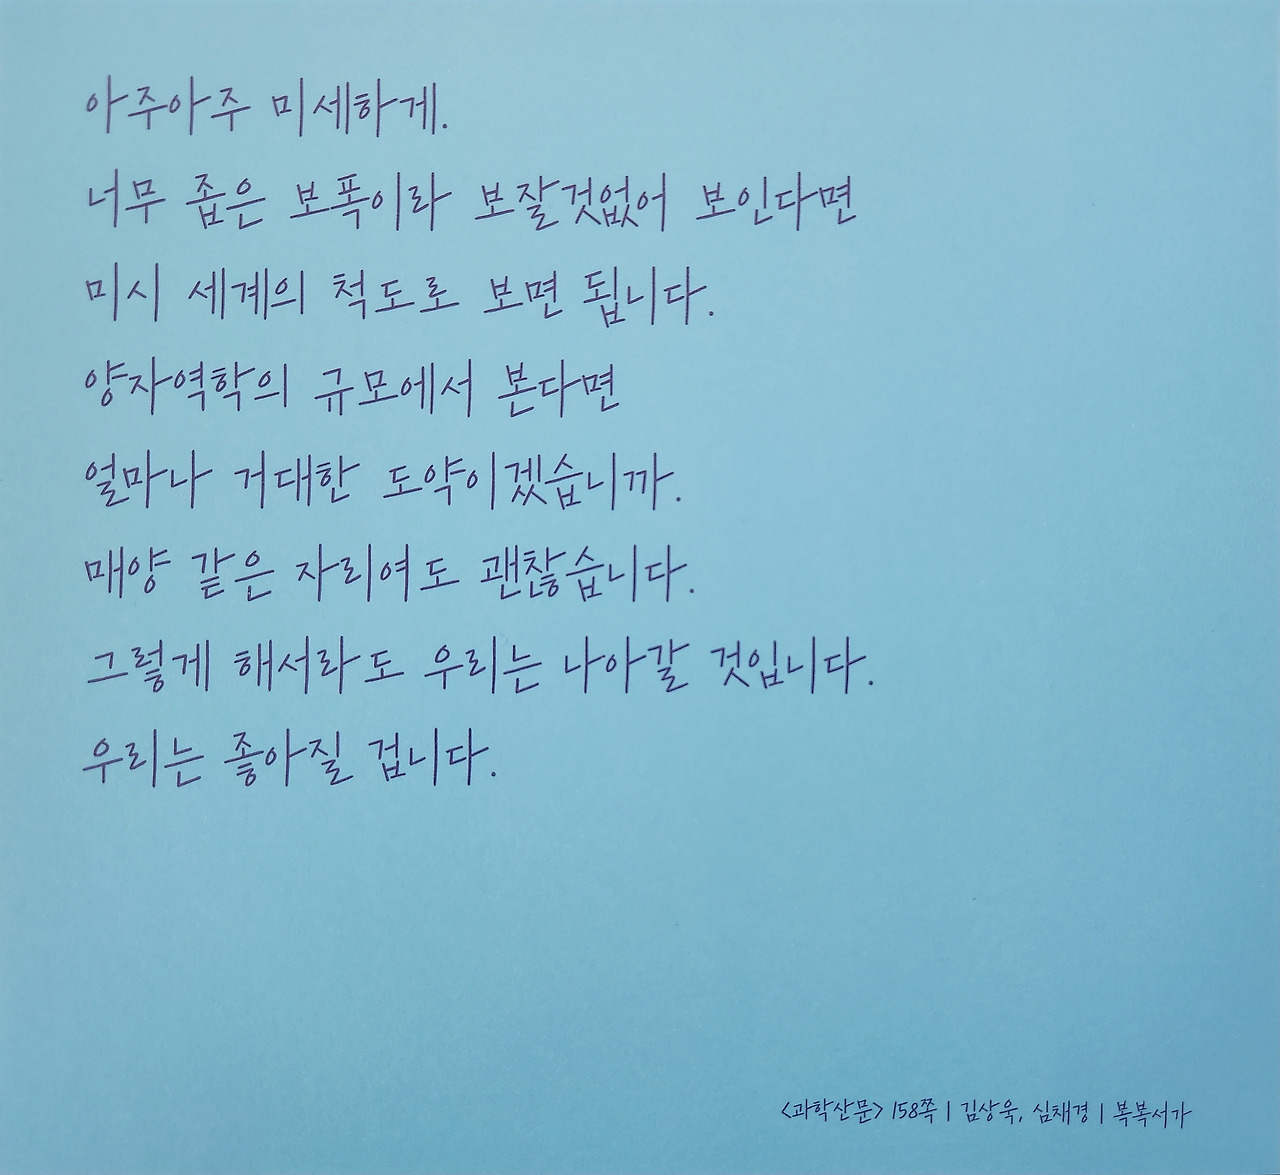 아주아주 미세하게.
너무 좁은 보폭이라 보잘것없어 보인다면
미시 세계의 척도로 보면 됩니다.
양자역학의 규모에서 본다면
얼마나 거대한 도약이겠습니까.
매양 같은 자리여도 괜찮습니다.
그렇게 해서라도 우리는 나아갈 것입니다.
우리는 좋아질 겁니다.
<과학산문> 158쪽 | 김상욱, 심채경 | 복복서가